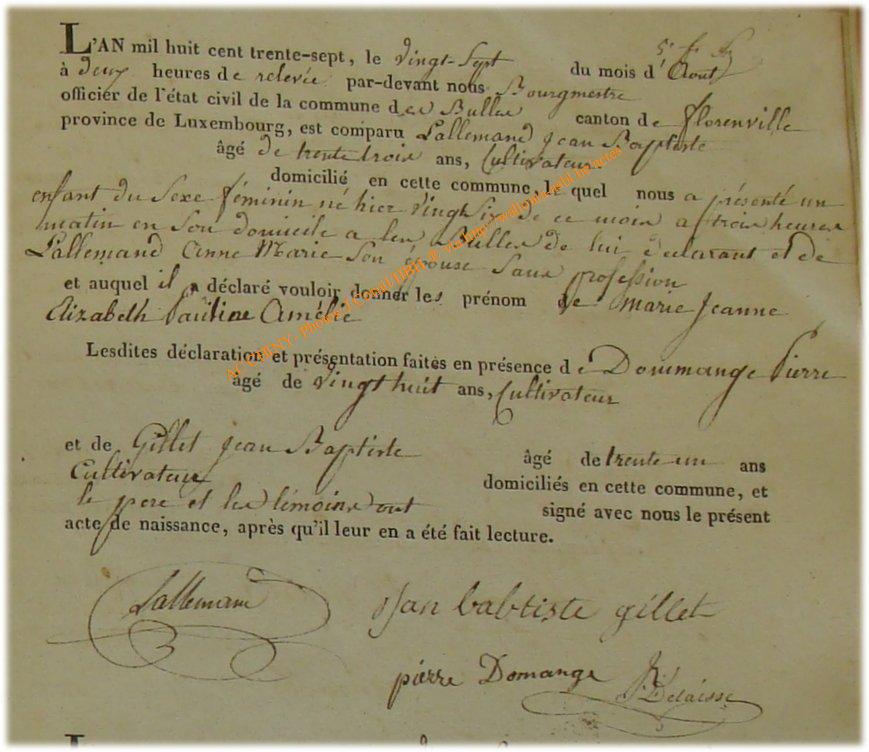 L'AN mil huit cent trente-sept, le vingt-sept du mois d'Aout
à deux heures de relevée par-devant nous Bourgmestre
officier de l'état civil de la commune des Bulles canton de florenville
province de Luxembourg, est comparu Lallemand jean Baptiste
âgé de trente trois ans, Cultivateur
domicilié en cette commune, le quel nous a présenté un
enfant du Sexe féminin né hier vingt six de ce mois a trois heures
matin en son domicile a les Bulles de lui déclarant et de
Lallemand Anne Marie Son épouse Sans profession
et auquel il a déclaré vouloir donner les prénom de marie Jeanne
Elizabeth Pauline Amélie
Lesdites déclaration et présentation faites en présence de Dommange Pierre
âgé de vingt huit ans, Cultivateur
et de Gillet jean Baptiste âgé de trente un ans
Cultivateur domiciliés en cette commune, et
le pere et les témoins ont signé avec nous le présent
acte de naissance, après qu'il leur en a été fait lecture.
Lallemand jean babtiste gillet
pierre Domange Delaisse